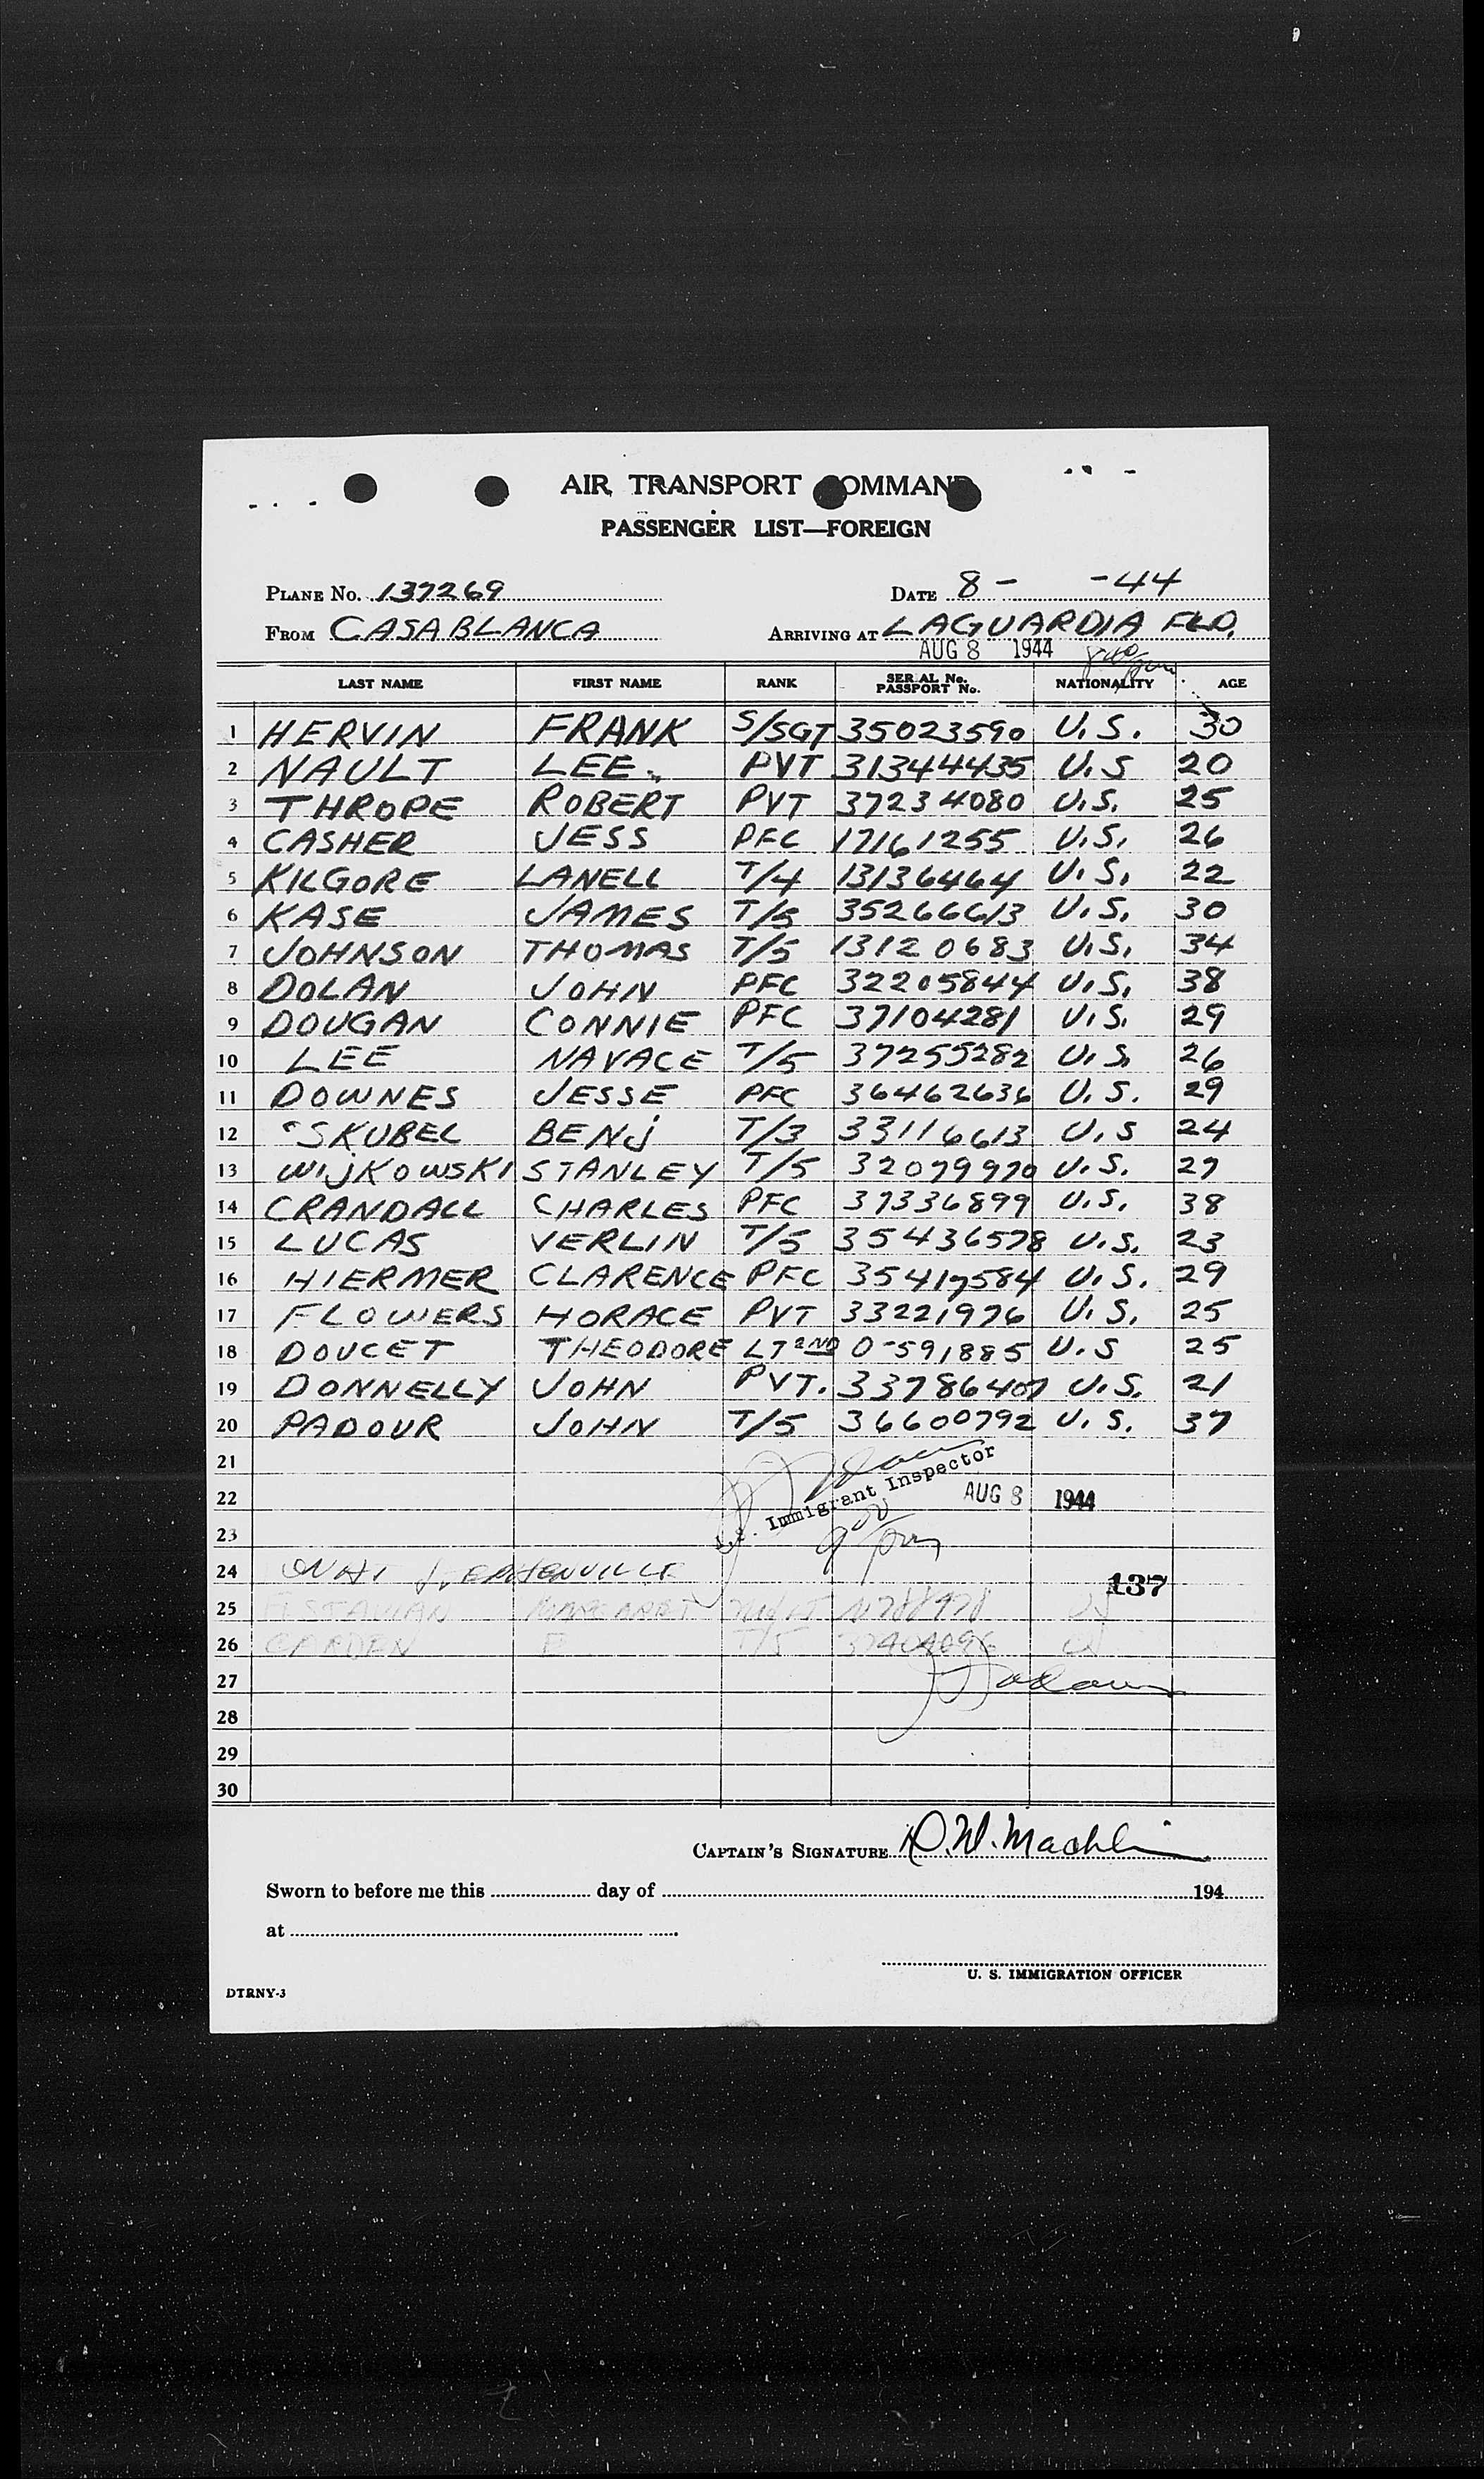 AIR TRANSPORT COMMAND
PASSENGER LIST—FOREIGN
PLANE No. 137269 DATE 8- -44
FROM CASABLANCA ARRIVING AT LAGUARDIA FLD.
AUG 8 1944
LAST NAME FIRST NAME RANK SERIAL No. PASSPORT No. NATIONALITY AGE
1 HERVIN FRANK S/SGT 35023590 U.S. 30
2 NAULT LEE. PVT 31344435 U.S 20
3 THROPE ROBERT PVT 37234080 U.S. 25
4 CASHER JESS PFC 17161255 U.S. 26
5 KILGORE LANELL T/4 13136464 U.S. 22
6 KASE JAMES T/5 35266613 U.S. 30
7 JOHNSON THOMAS T/5 13120683 U.S. 34
8 DOLAN JOHN PFC 32205844 U.S. 38
9 DOUGAN CONNIE PFC 37104281 U.S. 29
10 LEE NAVACE T/5 37255282 U.S. 26
11 DOWNES JESSE PFC 36462636 U.S. 29
12 SKUBEL BENJ T/3 33116613 U.S 24
13 WIJKOWSKI STANLEY T/5 32079970 U.S. 27
14 CRANDALL CHARLES PFC 37336899 U.S. 38
15 LUCAS VERLIN T/5 35436578 U.S. 23
16 HIERMER CLARENCE PFC 35417584 U.S. 29
17 FLOWERS HORACE PVT 33221976 U.S. 25
18 DOUCET THEODORE LT 2ND O-591885 U.S 25
19 DONNELLY JOHN PVT. 33786407 U.S. 21
20 PADOUR JOHN T/5 36600792 U.S. 37
21
Immigrant Inspector
22 AUG 8 1944
23
24 137
25
26 T/5
27
28
29
30
CAPTAIN'S SIGNATURE
Sworn to before me this day of 194
at
U. S. IMMIGRATION OFFICER
DTRNY-3